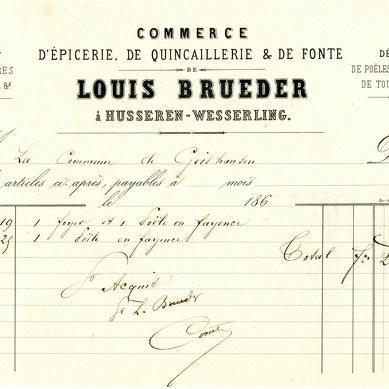 COMMERCE
D'ÉPICERIE, DE QUINCAILLERIE & DE FONTE
DE
LOUIS BRUEDER
à HUSSEREN-WESSERLING.
RES
& a
DÉ
DE POÊLES
DE TOU
La Commune de Geishausen
articles ci-après, payables à mois
le 186
19 1 foyer et 1 Poële en fayence
25 1 Poële en fayence
Total
Pr Acquit
Pr L. Brueder